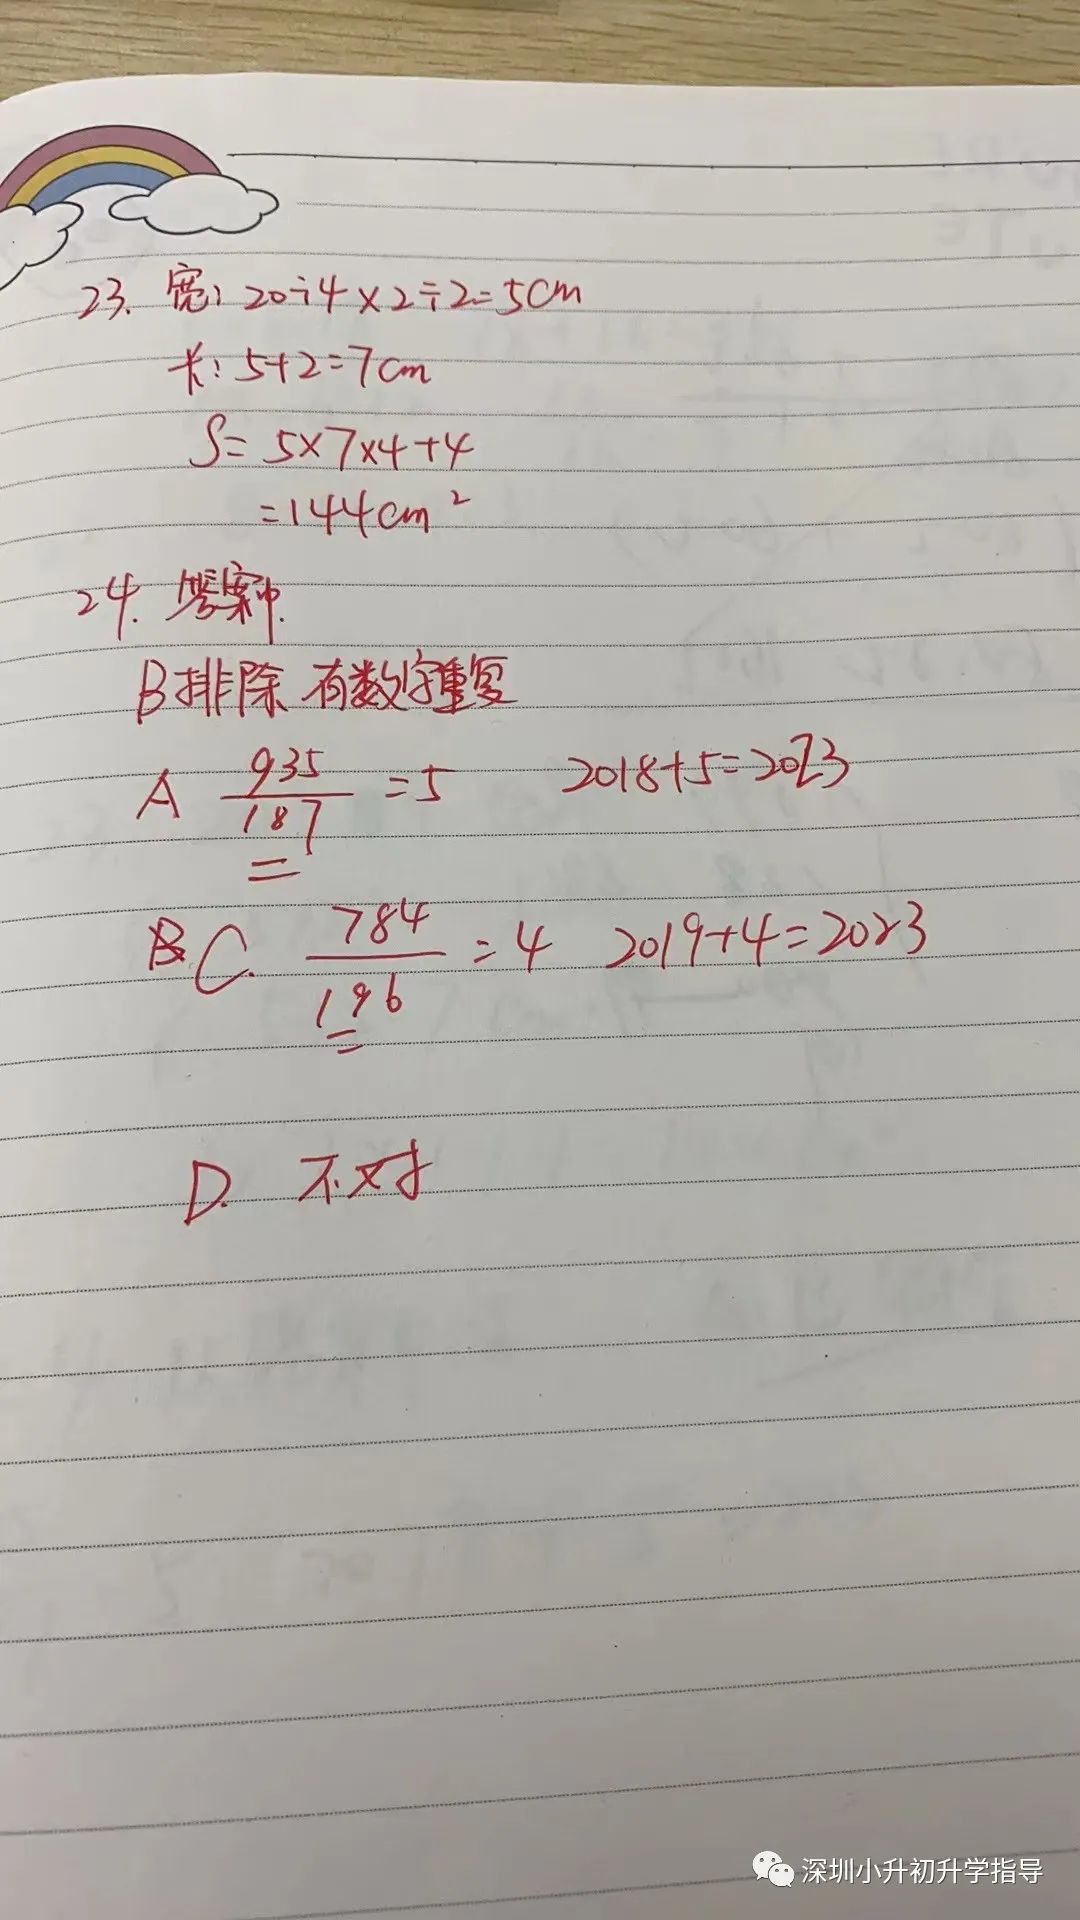 23. 宽: 20÷4×2÷2=5cm
长: 5+2=7cm
S= 5×7×4+4
=144cm²
24. 答案中.
B排除 有数字重复
A 935/187 =5 2018+5=2023
C. 784/196 =4 2019+4=2023
D. 不对
深圳小升初升学指导